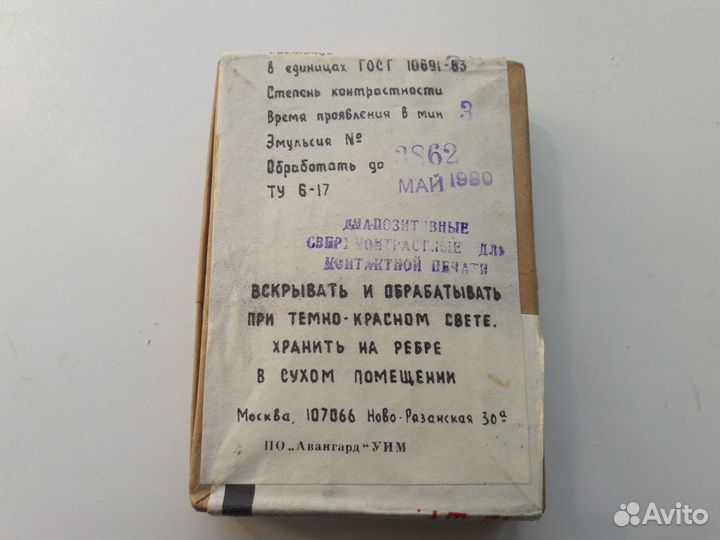 в единицах ГОСТ 10691-63
Степень контрастности
Время проявления в мин 3
Эмульсия № 3862
Обработать до МАЙ 1980
ТУ 6-17
ДИАПОЗИТИВНЫЕ
СВЕРХКОНТРАСТНЫЕ ДЛЯ
КОНТАКТНОЙ ПЕЧАТИ
ВСКРЫВАТЬ И ОБРАБАТЫВАТЬ
ПРИ ТЕМНО-КРАСНОМ СВЕТЕ.
ХРАНИТЬ НА РЕБРЕ
В СУХОМ ПОМЕЩЕНИИ
Москва, 107066 Ново-Рязанская 30а
ПО „Авангард" УИМ
Avito